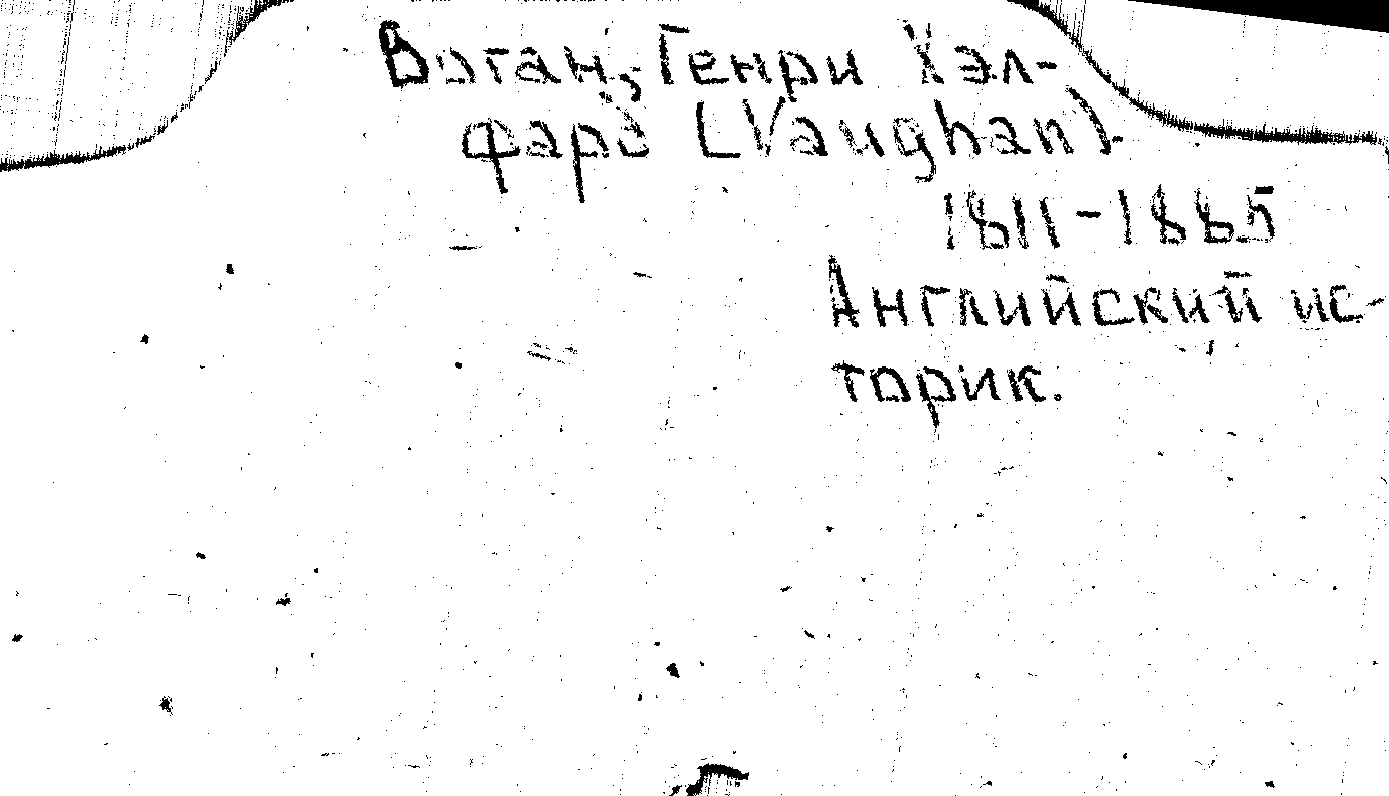 Воган, Генри Хэл-
фард (Vaughan).
1811-1885
Английский ис-
торик.